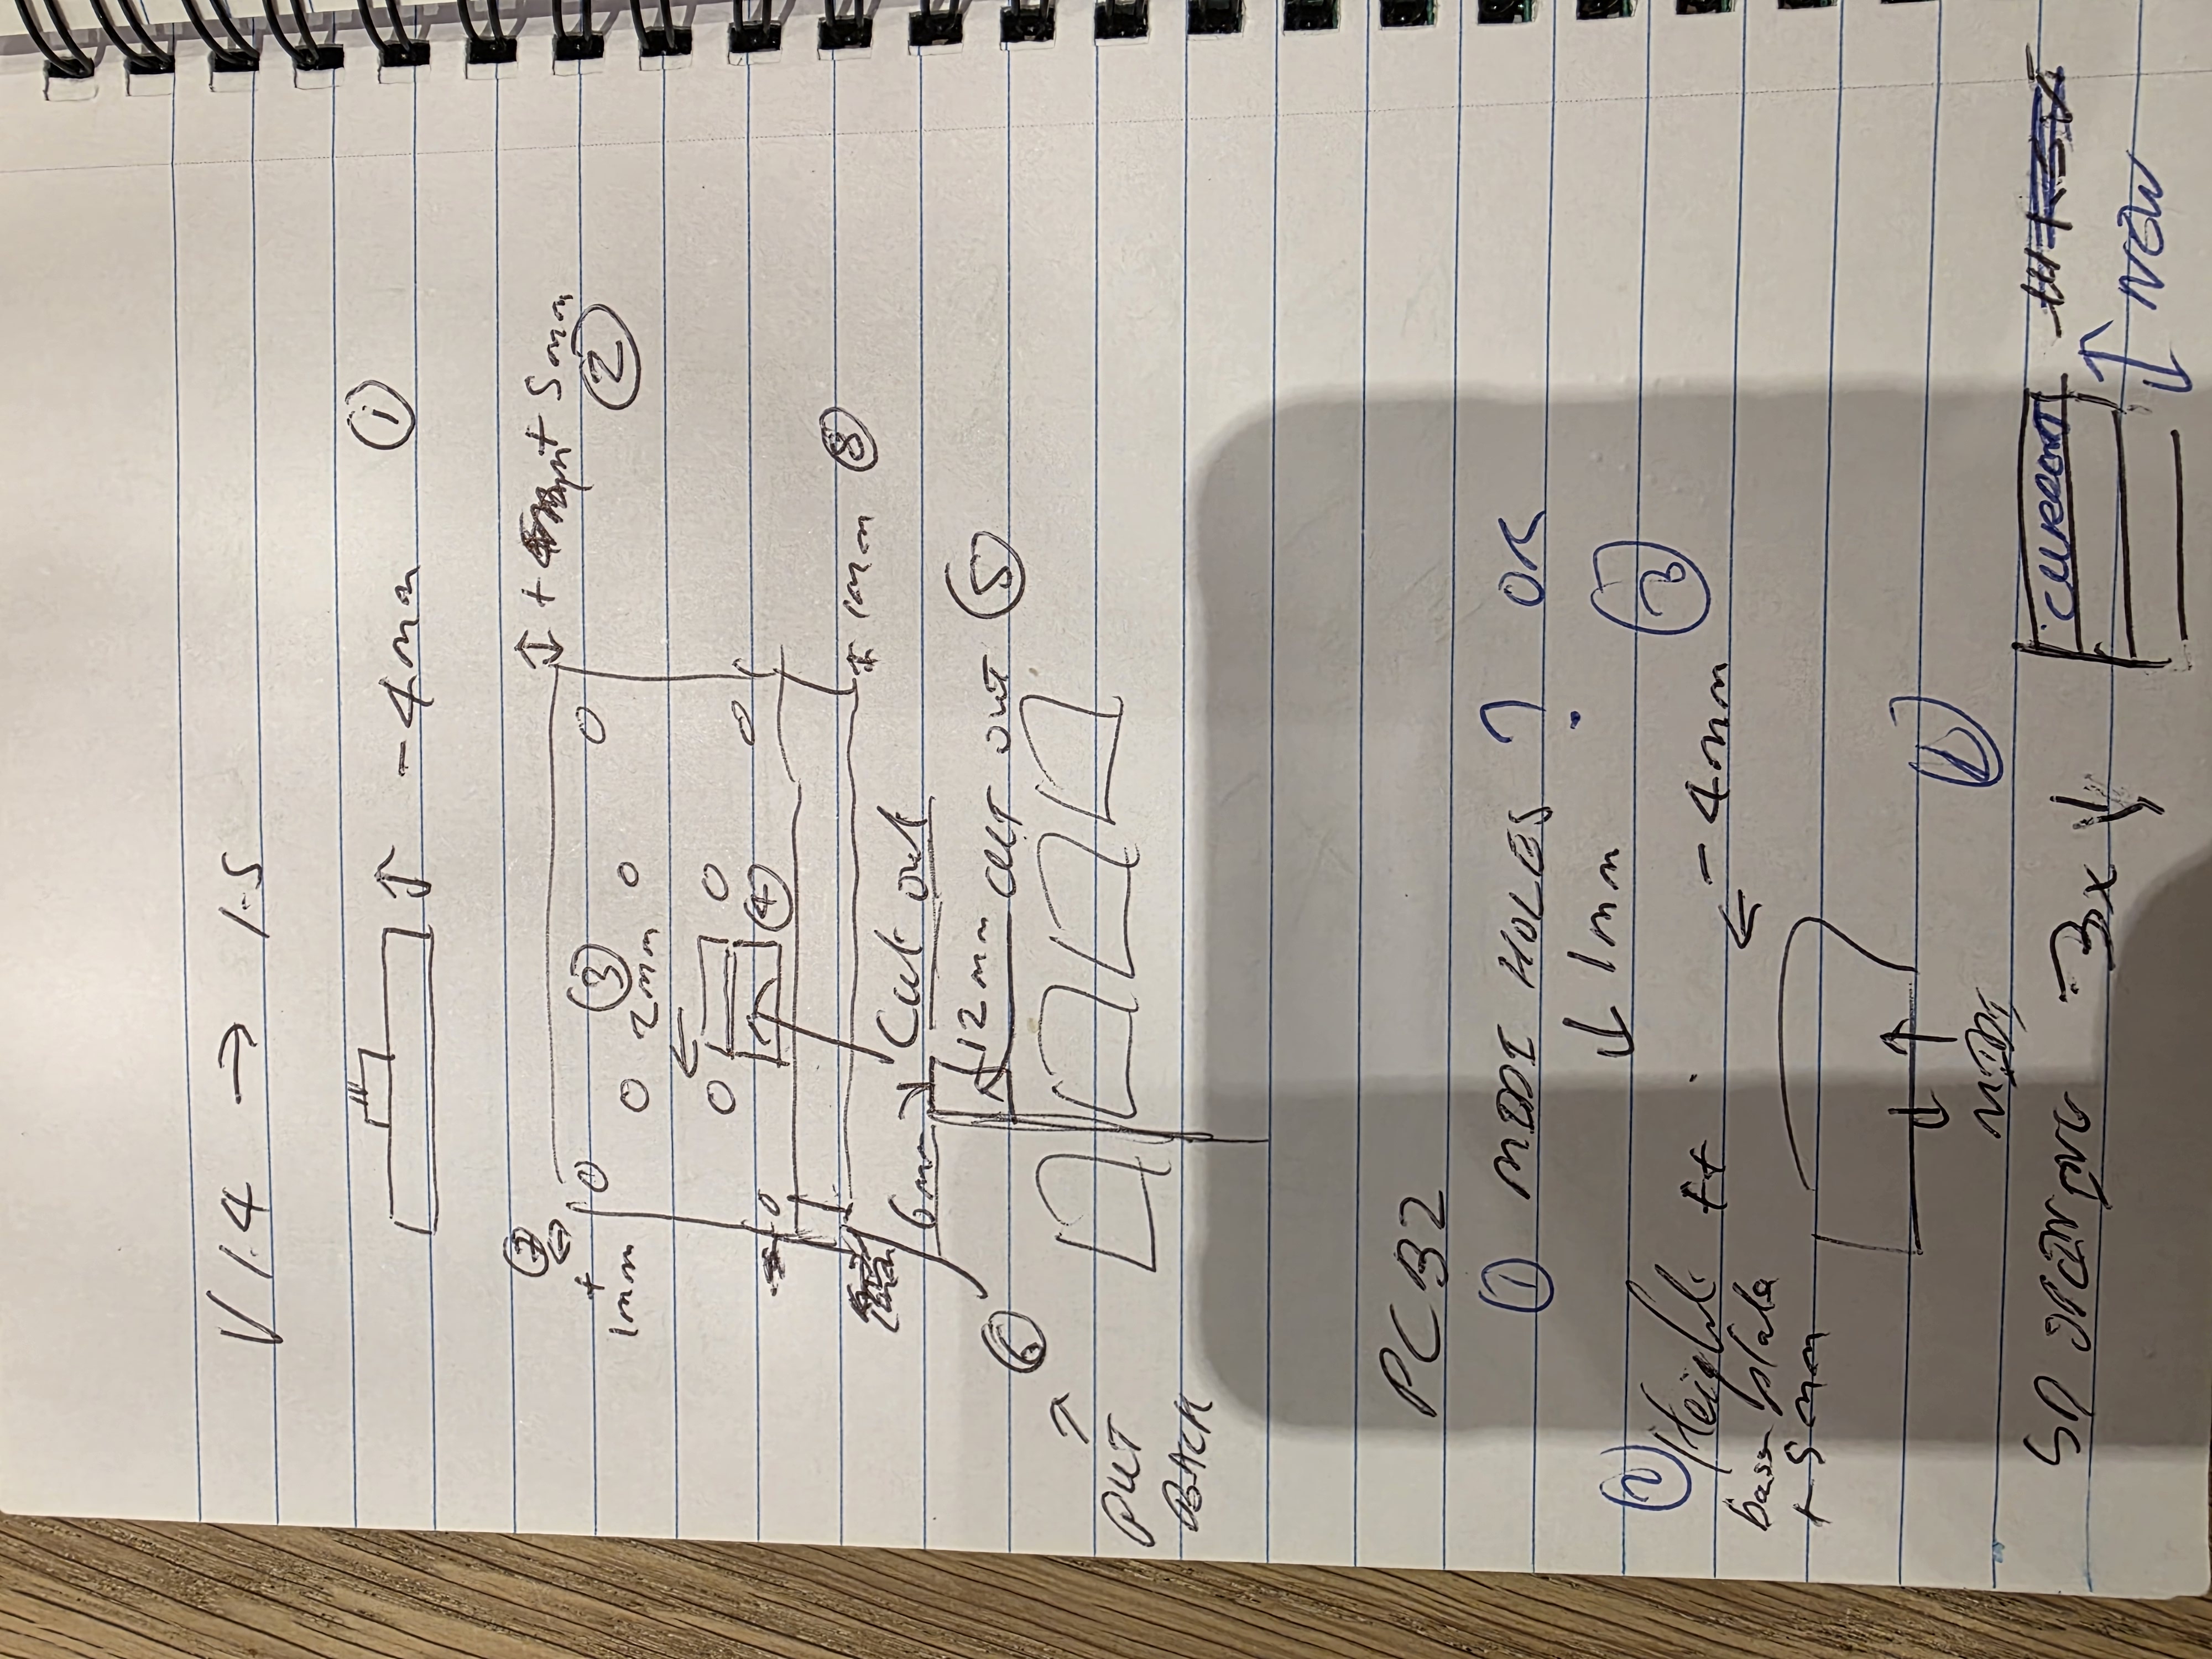 V 1.4 → 1.5
↕ -4mm ①
↕ + 5mm
②
⑦
+
1mm
③
2mm
④
+ 1mm ⑧
Cut out
6mm
12mm CUT OUT ⑤
⑥
PUT
BACK
PCB2
① MIDI HOLES ? OK
↓ 1mm
② Height
base plate
+ 5mm
← -4mm ③
MIDI
SD → 3x ↓
CURRENT
↕ NEW